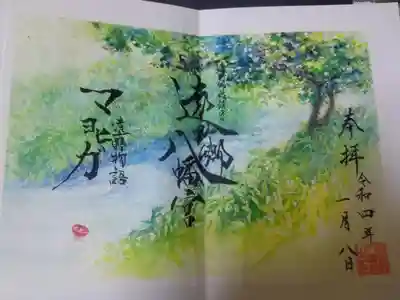 奉拝
令和四年
一月八日
遠野郷
八幡宮
遠野物語
マヨヒガ